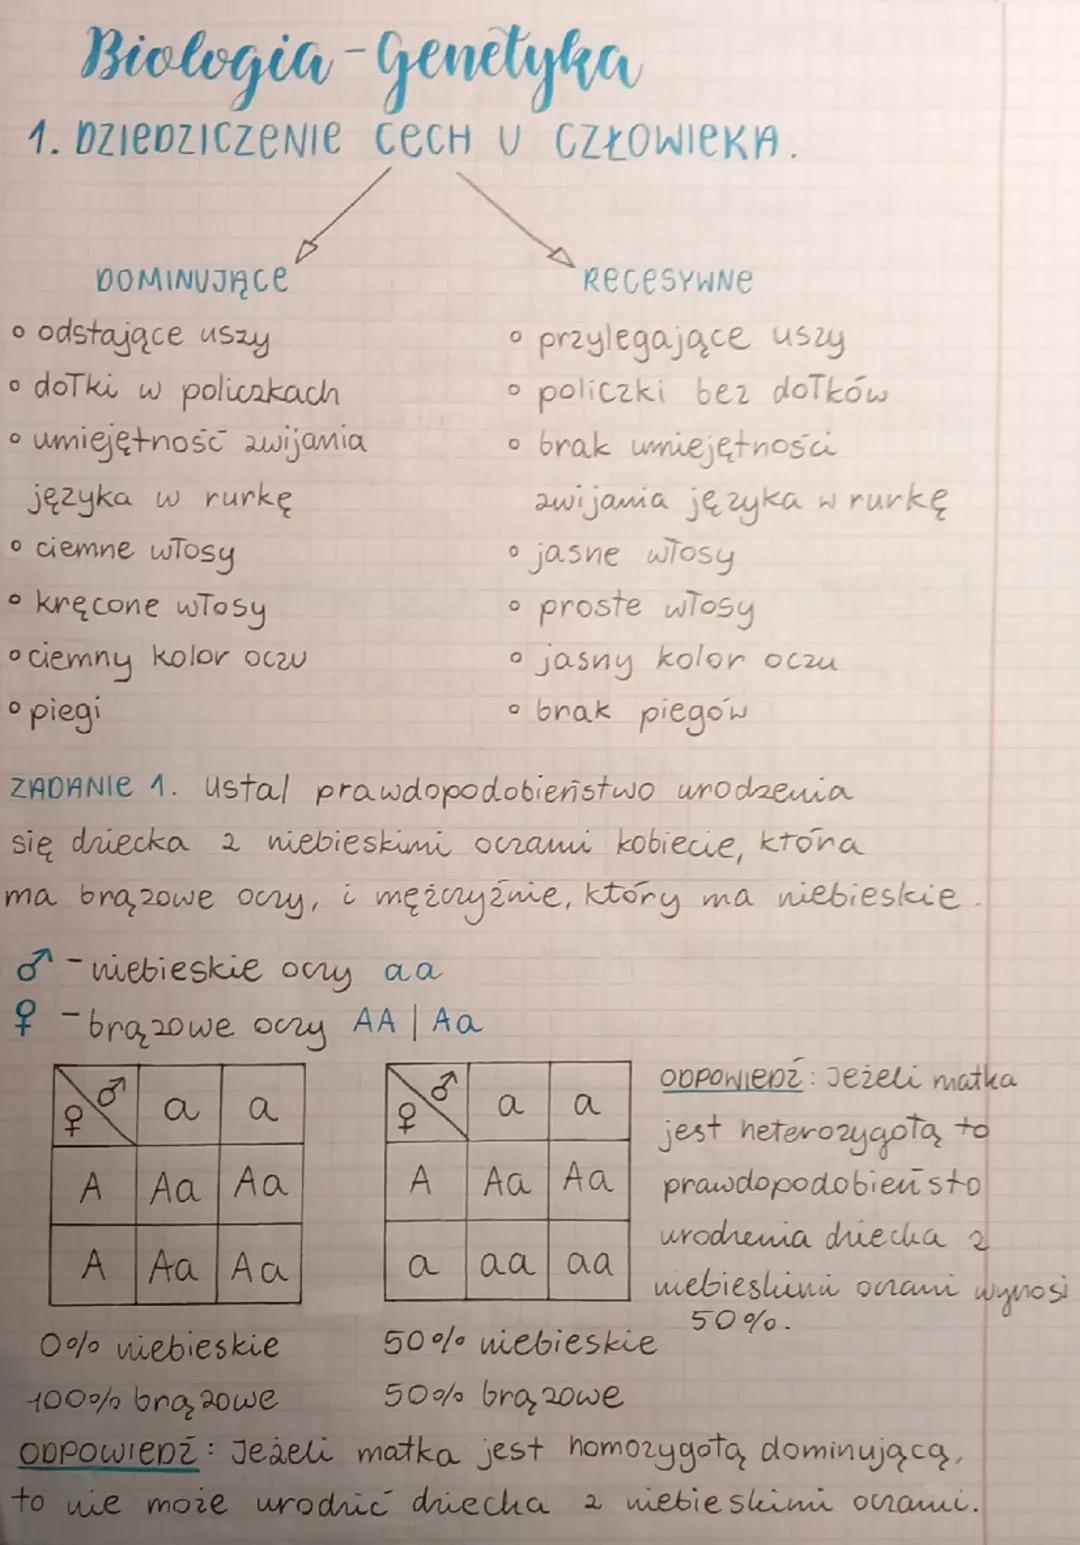 Biologia - Genetyka
1. DZIEDZICZENIE CECH U CZŁOWIEKA.
DOMINUJĄCE
odstające uszy
dołki w policzkach
umiejętność zwijania
języka w rurkę
ciemne włosy
kręcone włosy
ciemny kolor oczu
piegi
RECESYWNE
przylegające uszy
policzki bez dołków
brak umiejętności
zwijania języka w rurkę
jasne włosy
proste włosy
jasny kolor oczu
brak piegów
ZADANIE 1. Ustal prawdopodobieństwo urodzenia
się dziecka z niebieskimi oczami kobiecie, która
ma brązowe oczy, i mężczyźnie, który ma niebieskie.
♂ - niebieskie oczy aa
♀ - brązowe oczy AA | Aa
♀ ♂ a a
A Aa Aa
A Aa Aa
0% niebieskie
100% brązowe
♀ ♂ a a
A Aa Aa
a aa aa
50% niebieskie
50% brązowe
ODPOWIEDŹ: Jeżeli matka
jest heterozygotą to
prawdopodobieństo
urodzenia dziecka z
niebieskimi oczami wynosi
50%.
ODPOWIEDŹ: Jeżeli matka jest homozygotą dominującą,
to nie może urodzić dziecka z niebieskimi oczami.